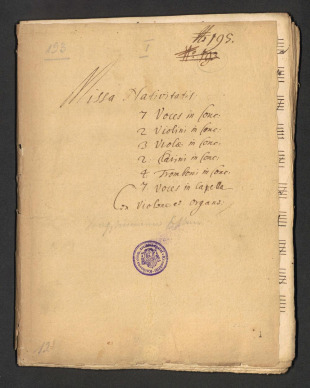 193
I
No 195.
Missa Nativitatis
7 Voces in Conc.
2 Violini in Conc.
3 Violæ in Conc.
2 Clarini in Conc.
4 Tromboni in Conc.
7 Voces in Capella
Con Violone et Organo.